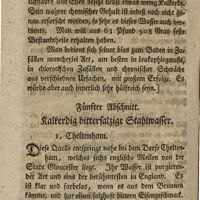 säure und Eisen besitzt diese etwas wenig Kalkerde.
Sein wahrer chemischer Gehalt ist indeß noch nicht ge-
nau erforscht worden, so sehr es dieses Wasser auch ver-
diente. Man will aus 63 Pfund 502 Gran feste
Bestandtheile erhalten haben.
Man bedient sich seiner blos zum Baden in Zu-
fällen mancherlei Art, am besten in krakephlegmasie,
in chlorotischen Zufällen und chronischer Schwäche
aus verschiednen Ursachen, mit großem Erfolge. Es
würde aber auch innerlich sehr hülfreich seyn.]
Fünfter Abschnitt.
Kalkerdig bittersalzige Stahlwasser.
1, Cheltenham.
Diese Quelle entspringt nahe bei dem Dorfe Chelten-
ham, welches sechs englische Meilen von der
Stadt Gloucester liegt. Ihr Wasser ist purgieren-
der Art und eins der berühmtesten in England. Es
ist klar und farbelos, wenn es aus dem Brunnen
kömmt, und hat einen salzhaft bittern Eisengeschmack.